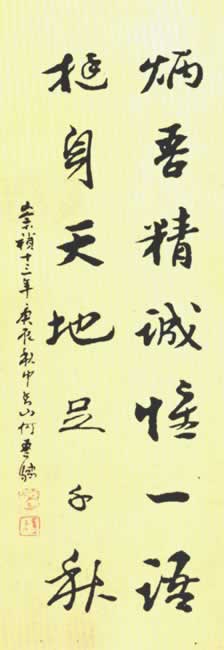 炳吾精诚悟一语
挺身天地足千秋
崇祯十三年庚辰秋中岳山何